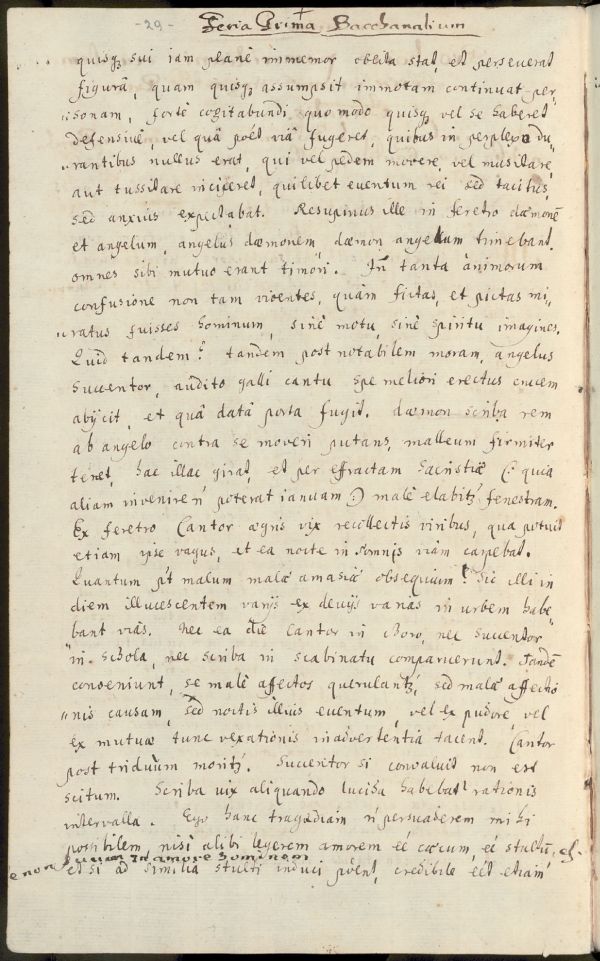 - 29 - Feria Prima Bacchanalium
quisq3 sui iam planè immemor oblita stat, et perseverat
figurâ, quam quisq3 assumpsit immotam continuat per,,
,,sonam, fortè cogitabundi quo modo quisq3 vel se haberet
defensivè, vel quâ poët viâ fugeret, quibus in perplexo du,,
,,rantibus nullus erat, qui vel pedem movere, vel musitare,
aut tussitare inciperet, quilibet eventum rei sed tacitus,
sed anxius expectabat. Resupinus ille in feretro dæmonē
et angelum, angelus dæmonem, dæmon angelum timebant.
omnes sibi mutuo erant timori. In tanta animorum
confusione non tam viventes, quàm fictas, et pictas mi,,
,,ratus fuisses hominum, sinè motu, sinè spiritu imagines.
Quid tandem? tandem post notabilem moram, angelus
Succentor, audito galli cantu spe meliori erectus crucem
abijcit, et quâ datâ porta fugit. dæmon scriba rem
ab angelo contra se moveri putans, malleum firmiter
tenet, hac illac girat, et per effractam sacristiæ (: quia
aliam invenire ñ poterat ianuam :) malè elabitʒ fenestram.
Ex feretro Cantor ægris vix recollectis viribus, qua potuit
etiam ipse vagus, et ea nocte in somnis viam carpebat.
Quantum fit malum malæ amasiæ obsequium! Sic illi in
diem illucescentem varijs ex devijs varias in urbem habe
bant vias. Nec ea die Cantor in choro, nec Succentor
in schola, nec scriba in scabinatu comparuerunt. Tandē
conveniunt, se malè affectos querulantʒ, sed malæ affectio
,,nis causam, sed noctis illius eventum, vel ex pudore, vel
ex mutuæ tunc vexationis inadvertentia tacent. Cantor
post triduum moritʒ. Succentor si convaluit non est
scitum. Scriba vix aliquando lucida habebat rationis
intervalla. Ego hanc tragædiam ñ persuaderem mihi
possibilem, nisi alibi legerem amorem eē cæcum, eē stultū,
in amore hominem
et si ad similia stulti induci poënt, credibile eēt etiam